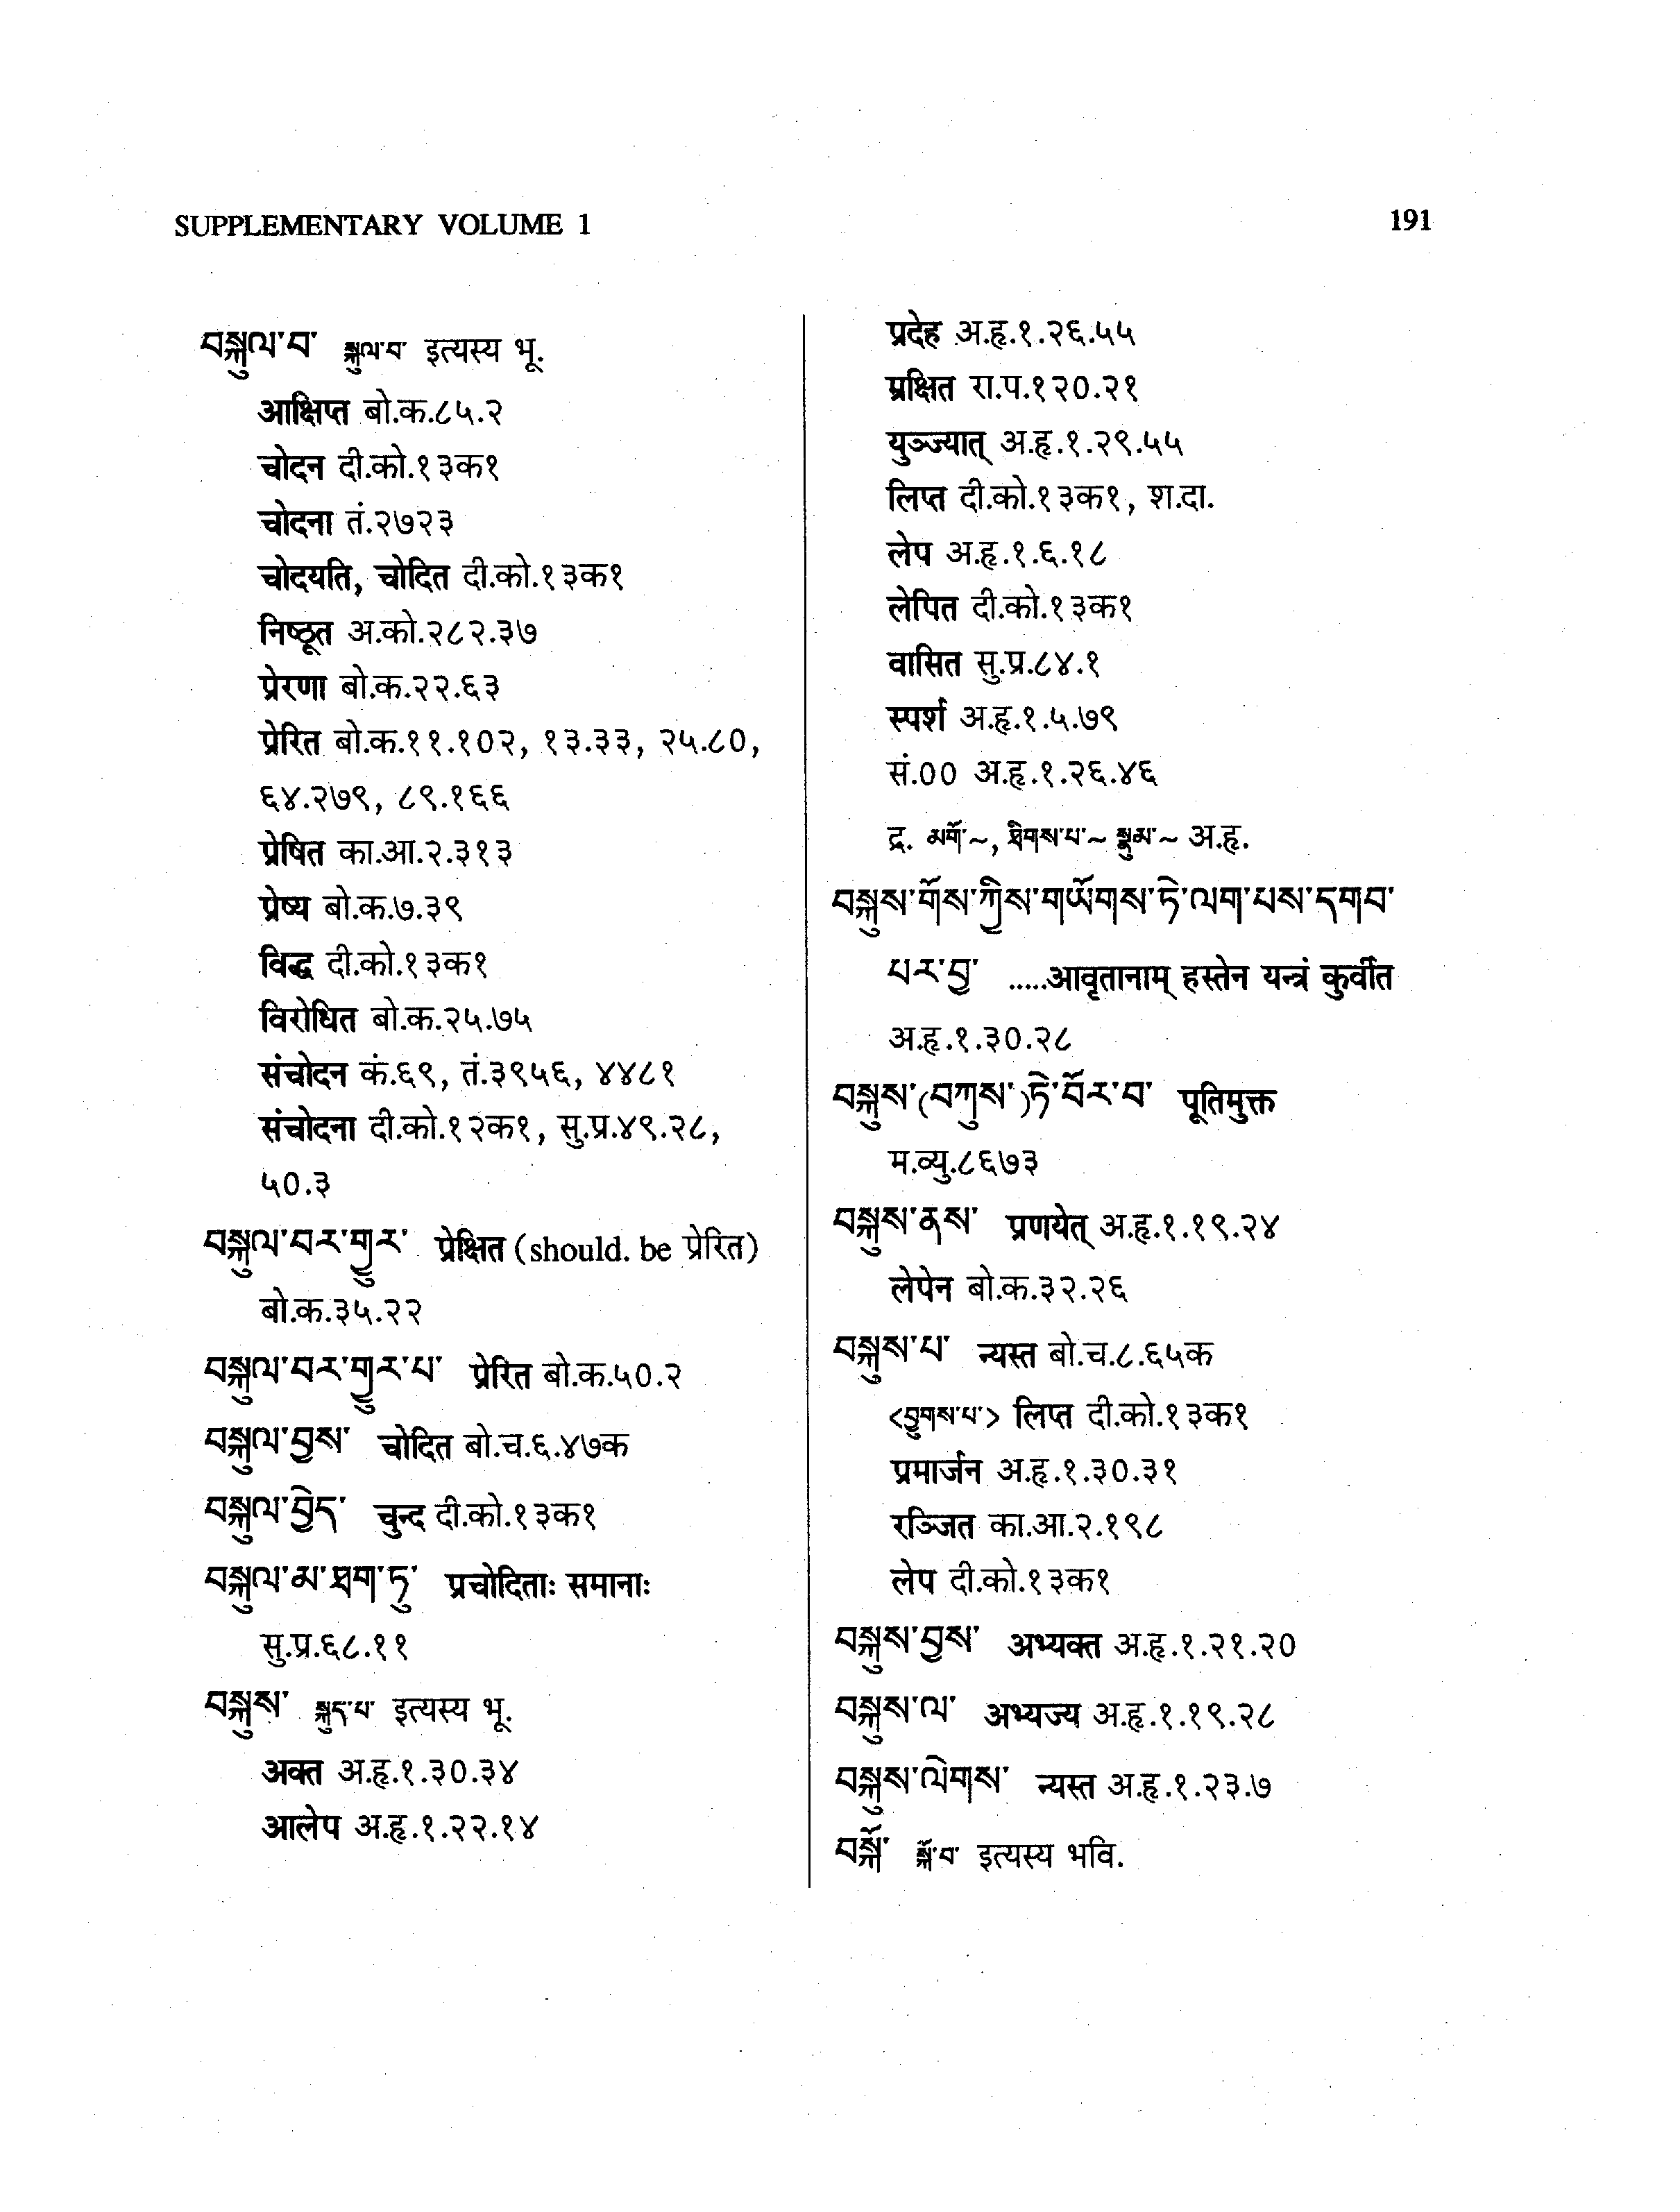 SUPPLEMENTARY VOLUME 1
191
བསྐུལ་བ་ སྐུལ་བ་ इत्यस्य भू.
आक्षिप्त बो.क.८५.२
चोदन दी.को.१३क१
चोदना तं.२७२३
चोदयति, चोदित दी.को.१३क१
निष्ठूत अ.को.२८२.३७
प्रेरणा बो.क.२२.६३
प्रेरित बो.क.११.१०२, १३.३३, २५.८०,
६४.२७९, ८९.१६६
प्रेषित का.आ.२.३१३
प्रेष्य बो.क.७.३९
विद्ध दी.को.१३क१
विरोधित बो.क.२५.७५
संचोदन कं.६९, तं.३९५६, ४४८१
संचोदना दी.को.१२क१, सु.प्र.४९.२८,
५०.३
བསྐུལ་བར་གྱུར་ प्रेक्षित (should. be प्रेरित)
बो.क.३५.२२
བསྐུལ་བར་གྱུར་པ་ प्रेरित बो.क.५०.२
བསྐུལ་བྱས་ चोदित बो.च.६.४७क
བསྐུལ་བྱེད་ चुन्द दी.को.१३क१
བསྐུལ་མ་ཐག་ཏུ་ प्रचोदिताः समानाः
सु.प्र.६८.११
བསྐུས་ སྐུད་པ་ इत्यस्य भू.
अक्त अ.हृ.१.३०.३४
आलेप अ.हृ.१.२२.१४
प्रदेह अ.हृ.१.२६.५५
म्रक्षित रा.प.१२०.२१
युञ्ज्यात् अ.हृ.१.२९.५५
लिप्त दी.को.१३क१, श.दा.
लेप अ.हृ.१.६.१८
लेपित दी.को.१३क१
वासित सु.प्र.८४.१
स्पर्श अ.हृ.१.५.७९
सं.०० अ.हृ.१.२६.४६
द्र. མགོ་~, ཐིགས་པ་~ སྣུམ་~ अ.हृ.
བསྐུས་གོས་ཀྱིས་གཡོགས་ཏེ་ལག་པས་དགབ་
པར་བྱ་ .....आवृतानाम् हस्तेन यन्त्रं कुर्वीत
अ.हृ.१.३०.२८
བསྐུས་(བཀུས་)ཏེ་བོར་བ་ पूतिमुक्त
म.व्यु.८६७३
བསྐུས་ནས་ प्रणयेत् अ.हृ.१.१९.२४
लेपेन बो.क.३२.२६
བསྐུས་པ་ न्यस्त बो.च.८.६५क
<བྱུགས་པ་> लिप्त दी.को.१३क१
प्रमार्जन अ.हृ.१.३०.३१
रञ्जित का.आ.२.१९८
लेप दी.को.१३क१
བསྐུས་བྱས་ अभ्यक्त अ.हृ.१.२१.२०
བསྐུས་ལ་ अभ्यज्य अ.हृ.१.१९.२८
བསྐུས་ལེགས་ न्यस्त अ.हृ.१.२३.७
བསྐོ་ སྐོ་བ་ इत्यस्य भवि.